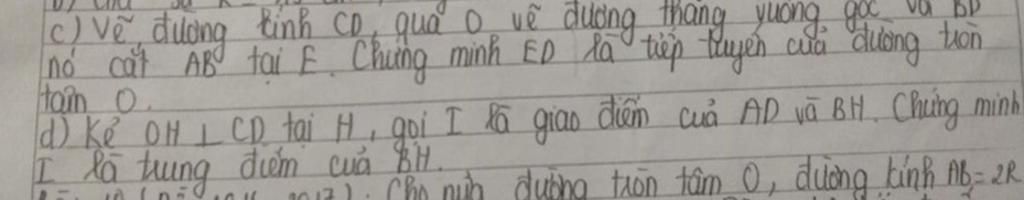 c) Vẽ đường kính CD, quả O vẽ đường thẳng vuông góc và BD
nó cắt AB tại E. Chứng minh ED là tiếp tuyến của đường tròn
tâm O.
d) Kẻ OH ⊥ CD tại H, gọi I là giao điểm của AD và BH. Chứng minh
I là trung điểm của BH.
Cho nửa đường tròn tâm O, đường kính AB = 2R